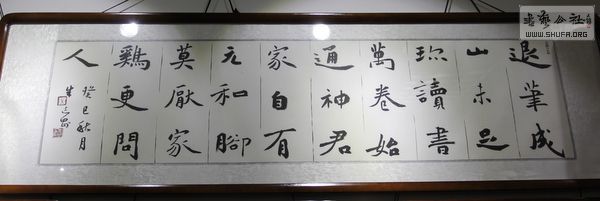 退筆成
山未足
珎讀書
萬卷始
通神君
家自有
元和腳
莫厭家
鷄更問
人
癸巳秋月
書藝公社
WWW.SHUFA.ORG